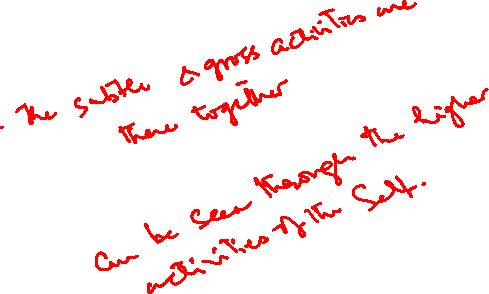 - The subtle & gross activities are
there together
can be seen through the higher
activities of the Self.